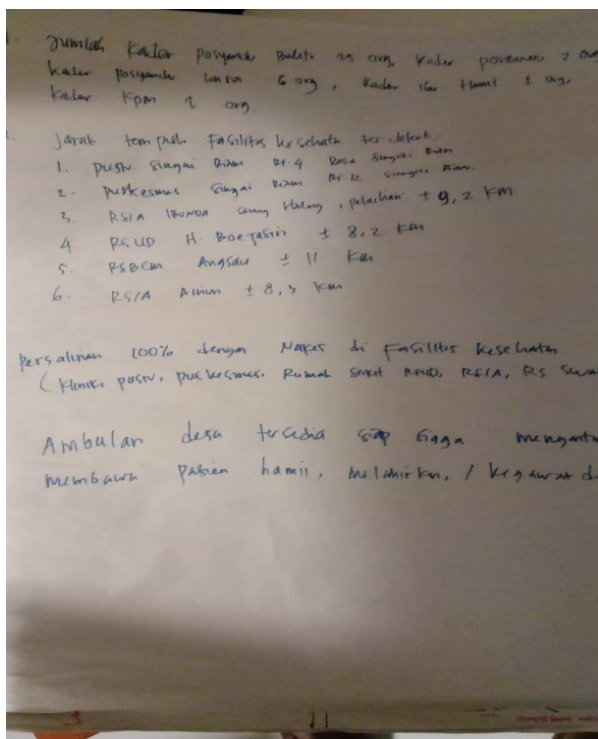 Jumlah Kader Posyandu Balita 25 org, Kader posremaja 2 org
Kader Posyandu lansia 6 org, Kader Ibu Hamil 1 org,
Kader KPM 1 org
Jarak tempuh Fasilitas Kesehatan terdekat.
1. pustu Sungai Riam Rt. 4 Desa Sungai Riam
2. puskesmas Sungai Riam Rt. 12 Sungai Riam.
3. RSIA IBUNDA Sarang Halang, pelaihari ± 9,2 KM
4. RSUD H. Boejasin ± 8,2 Km
5. RSBCM Angsau ± 11 Km
6. RSIA Ainun ± 8,3 Km
Persalinan 100% dengan Nakes di Fasilitas Kesehatan
(Klinik, pustu, puskesmas, Rumah Sakit RSUD, RSIA, RS
Ambulan desa tersedia siap siaga
membawa pasien hamil, melahirkan, /
3